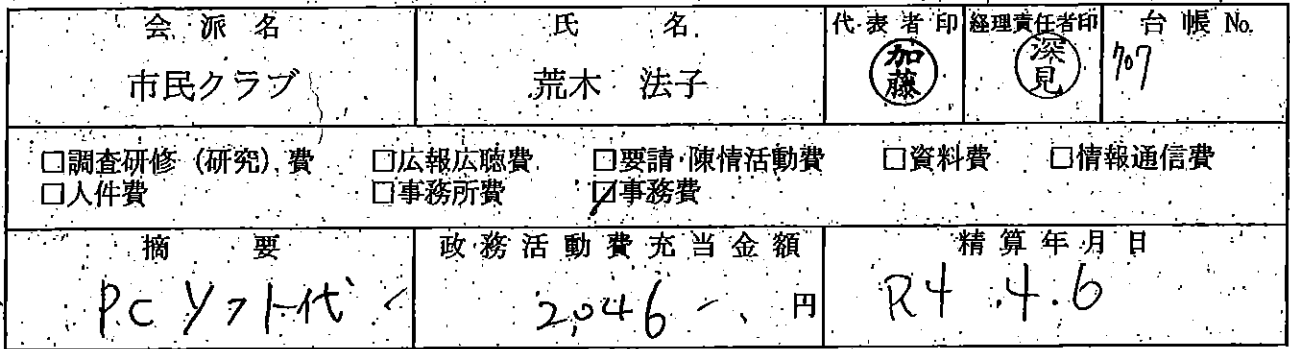 会派名 氏名 代表者印 経理責任者印 台帳No.
市民クラブ 荒木 法子 加藤 深見 707
□調査研修(研究)費 □広報広聴費 □要請・陳情活動費 □資料費 □情報通信費
□人件費 □事務所費 ☑事務費
摘要 政務活動費充当金額 精算年月日
PCソフト代 2,046- 円 R4.4.6